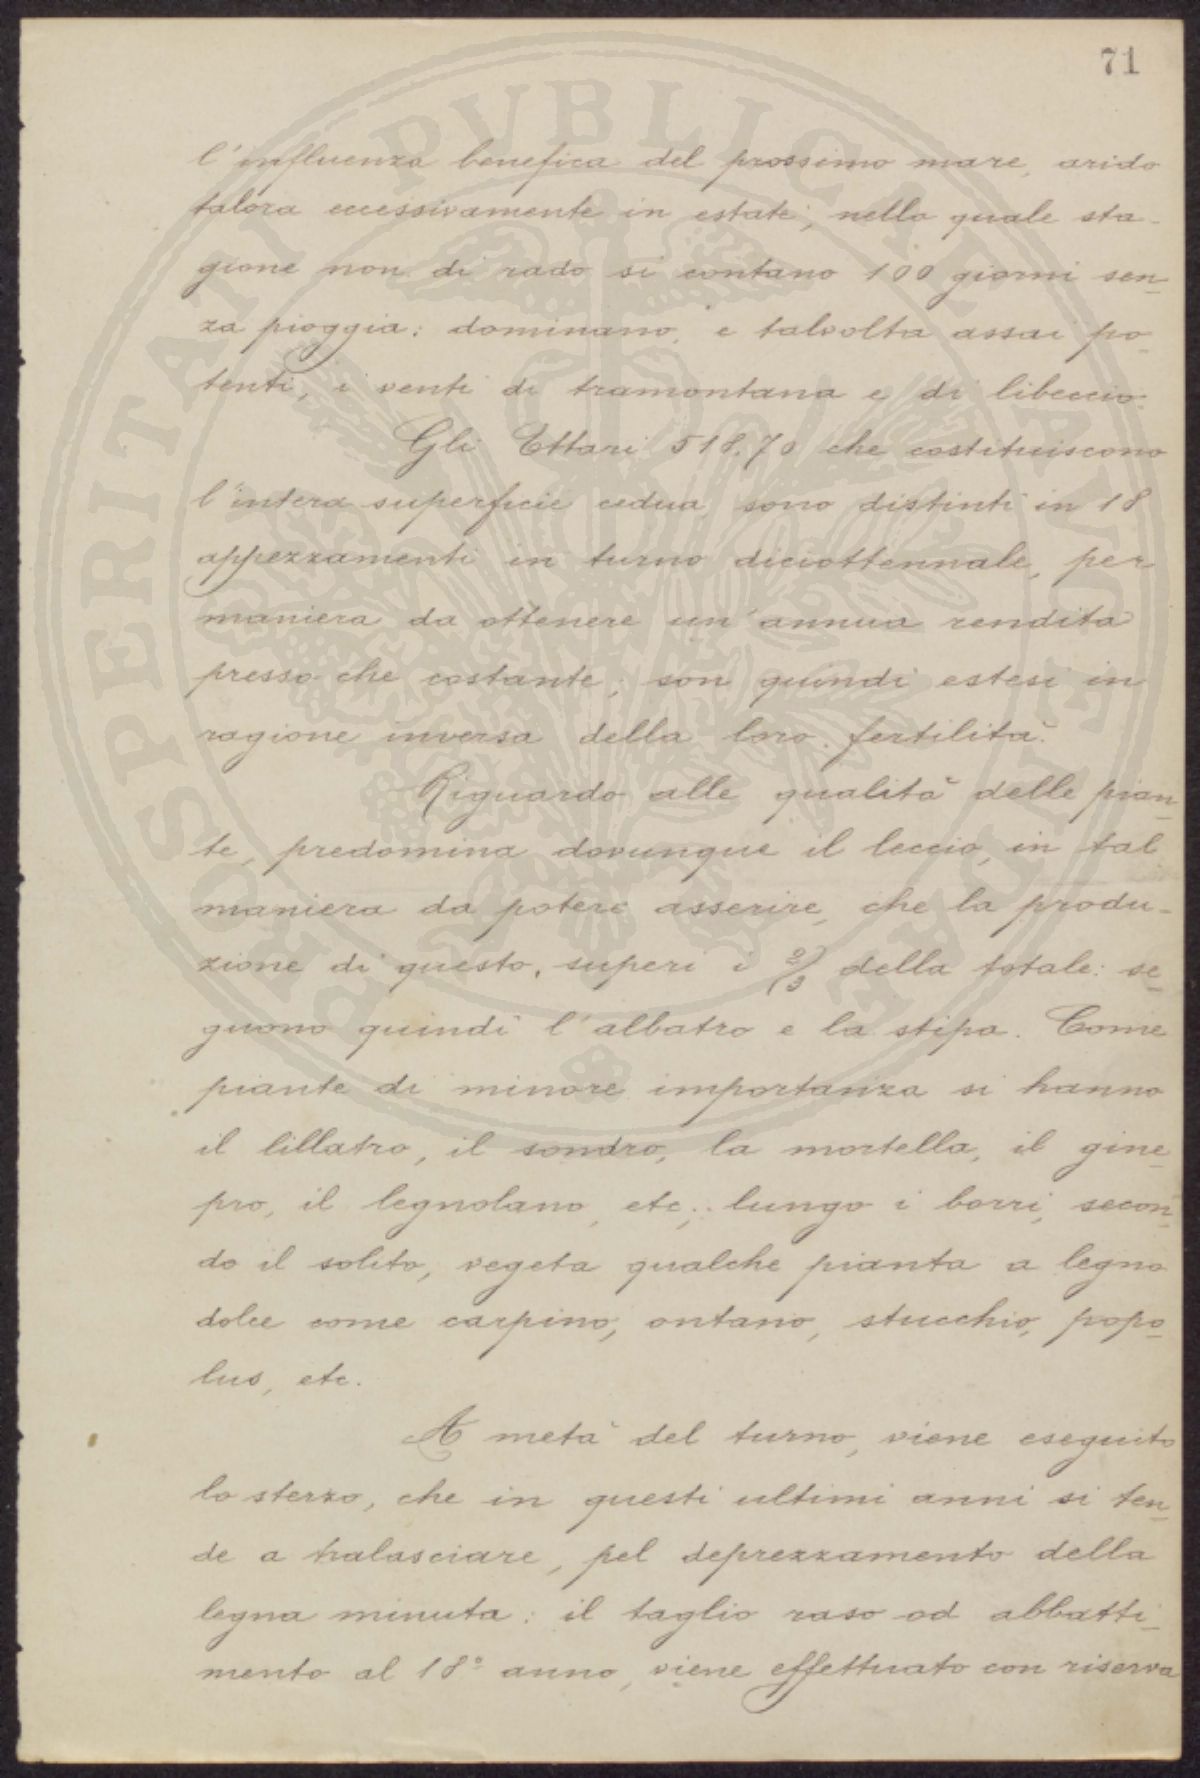 71
l'influenza benefica del prossimo mare, arido
talora eccessivamente in estate; nella quale sta-
gione non di rado si contano 100 giorni sen-
za pioggia: dominano, e talvolta assai po-
tenti, i venti di tramontana e di libeccio.
Gli Ettari 518.70 che costituiscono
l'intera superficie cedua, sono distinti in 18
appezzamenti in turno diciottennale, per
maniera da ottenere un'annua rendita
presso che costante; son quindi estesi in
ragione inversa della loro fertilità.
Riguardo alle qualità delle pian-
te, predomina dovunque il leccio, in tal
maniera da potere asserire, che la produ-
zione di questo, superi i 2/3 della totale: se-
guono quindi l'albatro e la stipa. Come
piante di minore importanza si hanno
il lillatro, il sondro, la mortella, il gine-
pro, il legnolano, etc.; lungo i borri, secon-
do il solito, vegeta qualche pianta a legno
dolce come carpino, ontano, stucchio, popo-
lus, etc.
A metà del turno, viene eseguito
lo sterzo, che in questi ultimi anni si ten-
de a tralasciare, pel deprezzamento della
legna minuta: il taglio raso od abbatti-
mento al 18° anno, viene effettuato con riserva
PROSPERITATI PVBLICAE AVGENDAE